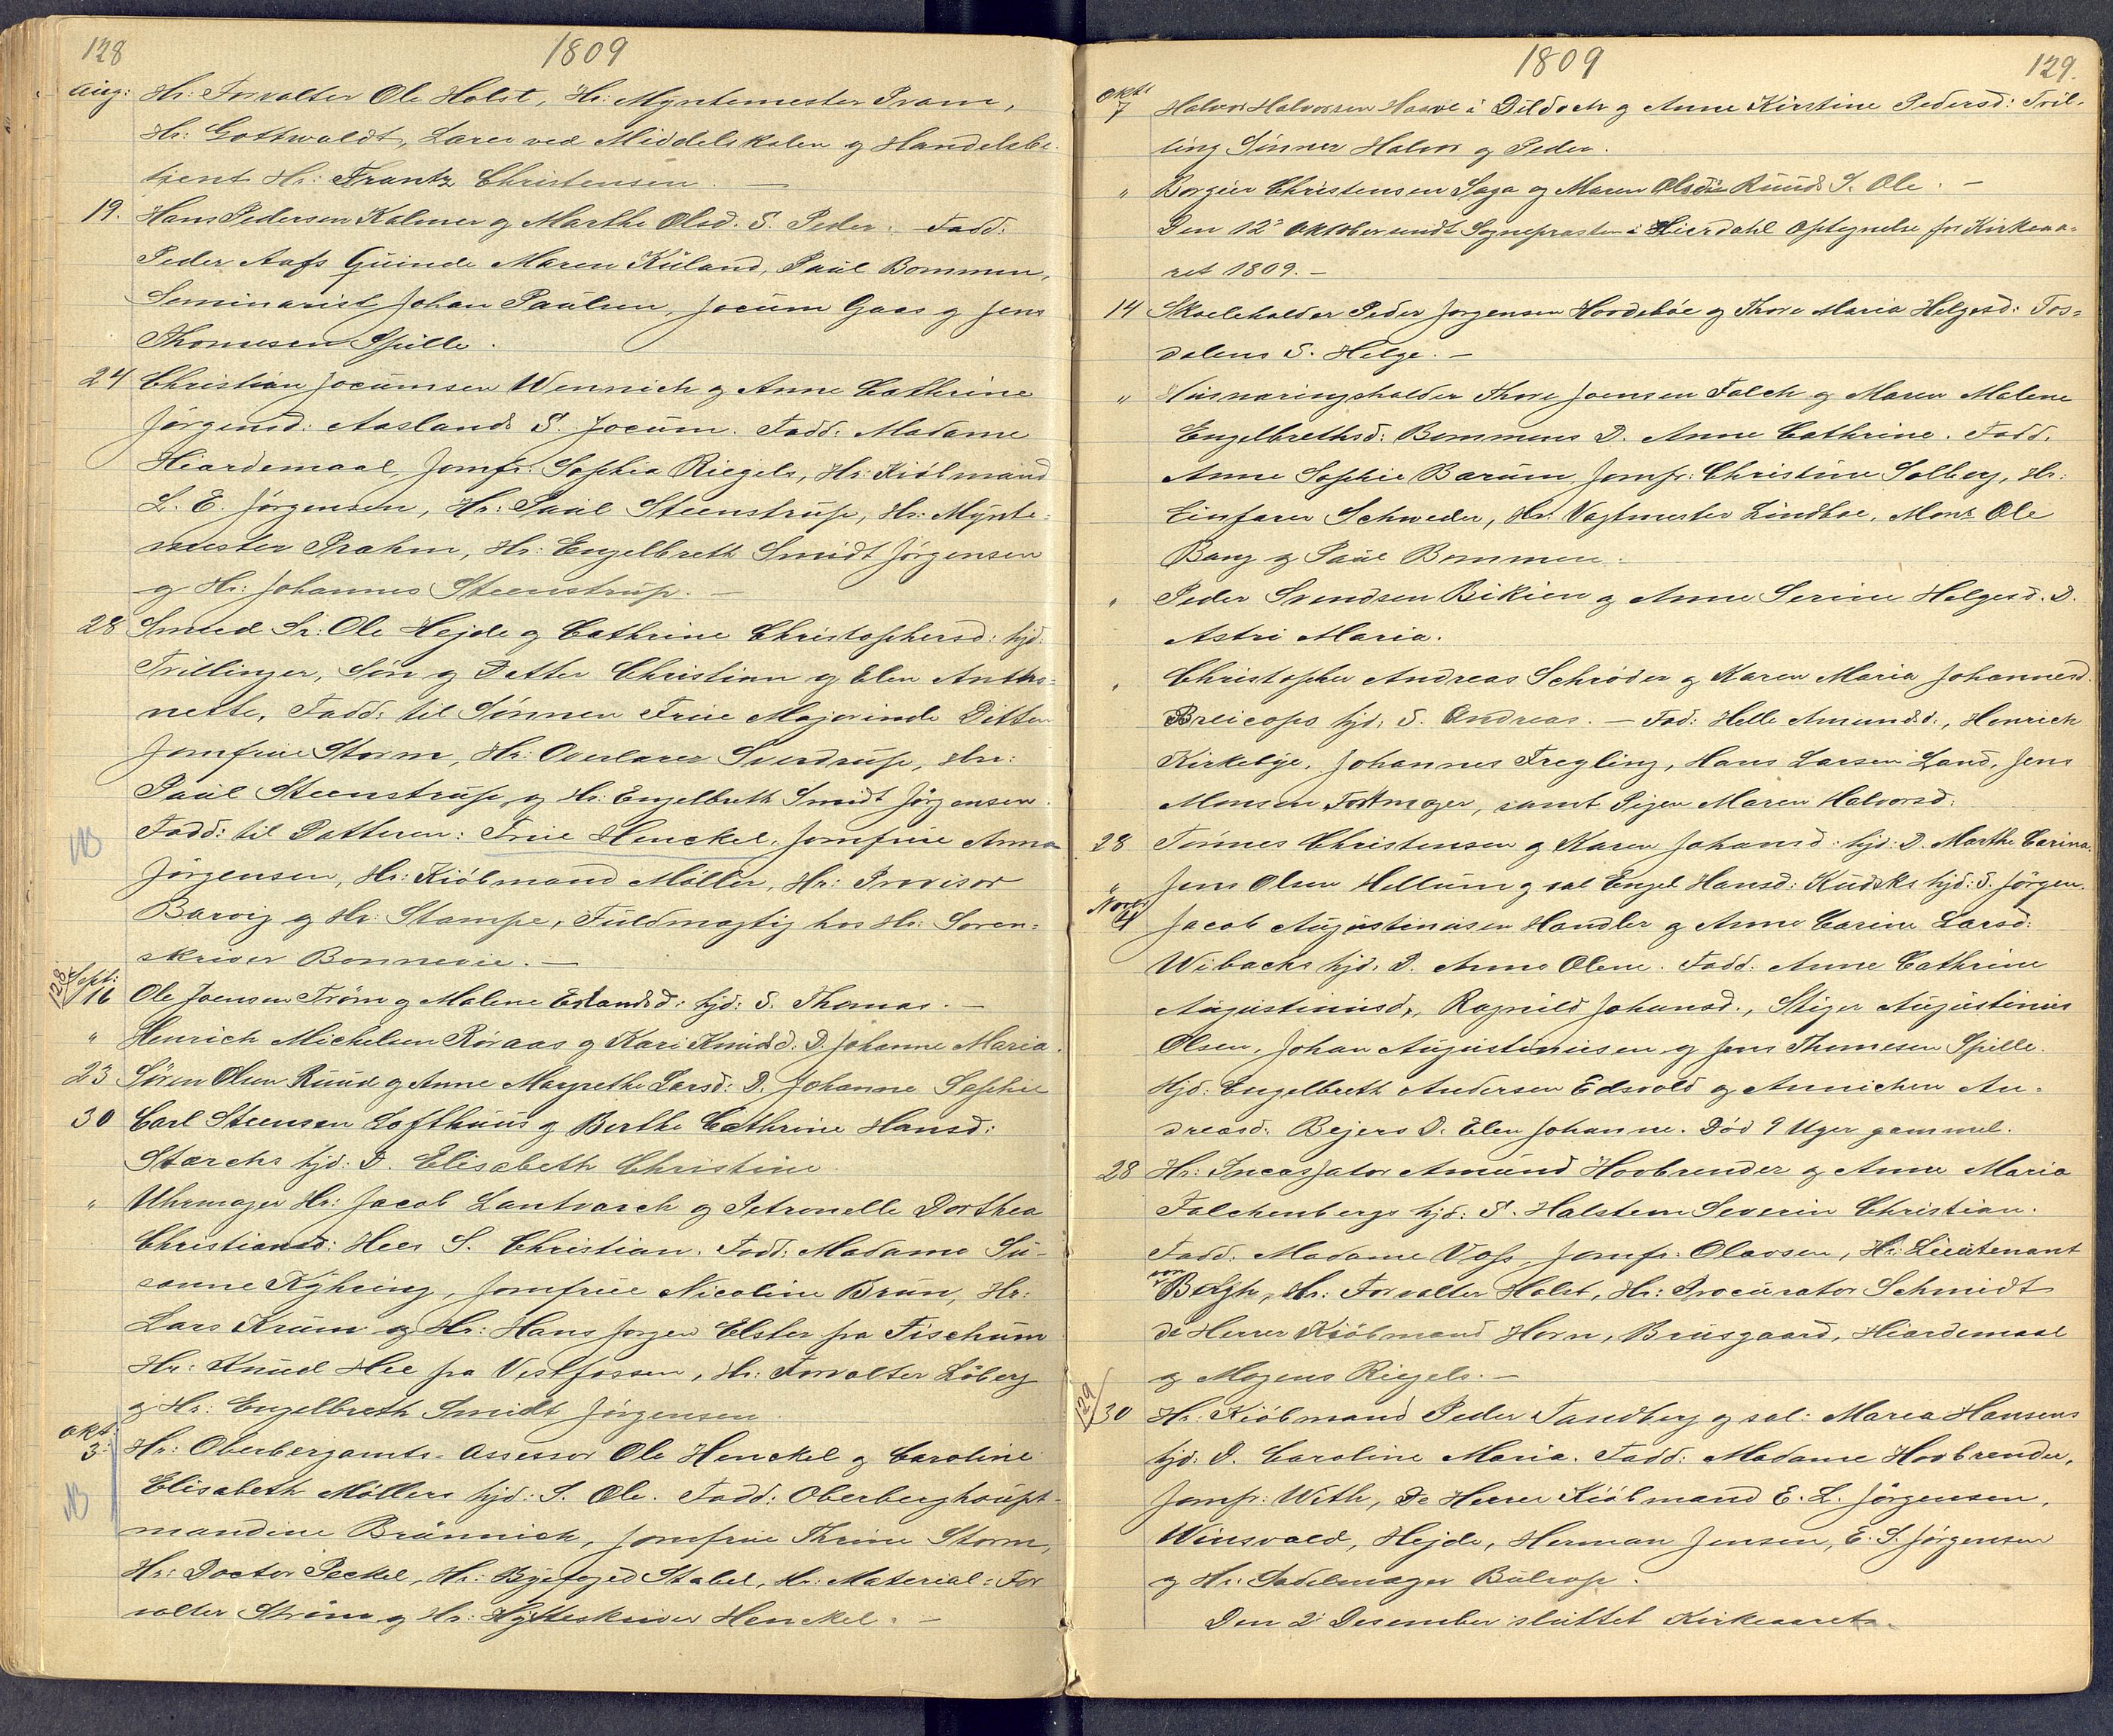 128
1809
Aug: Hr: Forvalter Ole Holst, Hr: Myntemester Pram,
Hr: Gottwaldt, Lærer ved Middelskolen og Handelsbe-
tjent Hr: Frantz Christensen. —
19. Hans Pedersen Kalmer og Marthe Olsd. S. Peder. Fadd:
Peder Aafs Quinde Maren Küland, Paül Bommen,
Seminarist Johan Paülsen, Jocüm Gaas og Jens
Thomesen Spille.
24 Christian Jocümsen Wennich og Anne Cathrine
Jørgensd: Aaslands S. Jocüm. Fadd: Madame
Hiardemaal, Jomfr: Sophia Riegels, Hr: Kiöbmand
L. E. Jörgensen, Hr: Paül Steenstrüp, Hr: Mÿnte-
mester Prahm, Hr: Engelbreth Smidt Jörgensen
og Hr: Johannes Steenstrüp. —
28 Smed Sr: Ole Hejde og Cathrine Christophersd: hjd:
Tvillinger, Søn og Datter Christian og Elen Antho-
nette, Fadd: til Sønnen Frue Majorinde Ditten
Jomfrue Storm, Hr: Overlærer Sverdrüp, Hr:
Paül Steenstrüp og Hr: Engelbreth Smidt Jörgensen.
NB Fadd: til Datteren: Frue Henckel, Jomfrue Anna
Jörgensen, Hr: Kiöbmand Möller, Hr: Provisor
Barvig og Hr: Stampe, Füldmægtig hos Hr: Soren-
skriver Bonnevie. —
128/ Sept: 16 Ole Joensen Tröm og Malene Erlandsd: hjd: S. Thomas. —
" Henrich Michelsen Röraas og Kari Knudsd: D. Johanne Maria.
23 Sören Olsen Ruud og Anne Margrethe Larsd: D. Johanne Sophie
30 Carl Steensen Lofthüus og Berthe Cathrine Hansd:
Starchs hjd: D. Elisabeth Christine.
" Uhrmager Hr: Jacob Lantvarch og Petronelle Dorthea
Christiansd: Hees S. Christian. Fadd: Madame Sü-
sanne Kÿhring, Jomfrue Nicoline Brün, Hr:
Lars Krüm og Hr: Hans Jörgen Elster fra Fischüm
Hr: Knud Hee fra Vestfossen, Hr: Forvalter Löberg
og Hr: Engelbreth Smidt Jörgensen.
Okt: 3: Hr: Oberbergamts-Assessor Ole Henckel og Caroline
NB Elisabeth Möllers hjd: S. Ole. Fadd: Oberberghaüpt-
mandine Brünnich, Jomfrue Thrine Storm,
Hr: Doctor Peckel, Hr: Bÿefoged Stabel, Hr: Material-For
valter Ström og Hr: Hÿtteskriver Henckel. —
1809
129.
Okt: 7 Halvor Halvorsen Haave i Dildoch og Anne Kirstine Pedersd: Tvil-
ling Sönner Halvor og Peder.
" Borgier Christensen Saga og Maren Olsd: Ruuds S. Ole. —
Den 12te Oktober sendt Sogneprasten i Hierdahl Optegnelse for Kirkeaa-
ret 1809. —
14 Skoleholder Peder Jørgensen Hordeböe og Thore Maria Helgesd: Fos-
dalens S. Helge. —
" Huusnæringsholder Thore Joensen Falch og Maren Malene
Engelbrethsd: Bommens D. Anne Cathrine. Fadd.
Anne Sophie Bærüm, Jomfr: Christine Solberg, Hr:
Einfarer Schweder, Hr: Vagtmester Lindboe, Monsr Ole
Bang og Paül Bommen.
" Peder Svendsen Bikien og Anne Serine Helgesd. D.
Astri Maria.
" Christopher Andreas Schröder og Karen Maria Johannesd.
Breicops hjd: S. Andreas. — Fad: Helle Amundsd., Henrich
Kirkebÿe, Johannes Fregling, Hans Larsen Land, Jens
Monsen Fortmager, samt Pigen Maren Halvorsd:
28 Tönnes Christensen og Karen Johansd: hjd: D. Marthe Carina.
" Jens Olsen Hellum og sal Engel Hansd: Kudsks hjd: S. Jörgen.
Novb: 4 Jacob Augustinusen Handler og Anne Carine Larsd:
Wibachs hjd: D. Anne Olene. Fadd: Anne Cathrine
Augustinusd:, Ragnild Johansd., Stiger Augustinus
Olsen, Johan Augustinusen og Jens Thomesen Spille.
Hjd: Engelbreth Andersen Edsvold og Annichen An-
dreasd: Bejers D. Elen Johanne. Død 9 Uger gammel.
28 Hr: Incassator Amund Hoobrender og Anne Maria
Falchenbergs hjd: S. Halsteen Severin Christian.
Fadd: Madame Vofs, Jomfr: Olavsen, Hr: Lieutenant
von Bergh, Hr: Forvalter Holst, Hr: Procurator Schmidt
de Herrer Kiöbmand Horn, Brüsgaard, Hiardemaal
og Mogens Riegels. —
129/ 30 Hr: Kiöbmand Peder Tandberg og sal: Maria Hansens
hjd: D. Caroline Maria. Fadd: Madame Hoobrender,
Jomfr: Weth, De Herrer Kiöbmand E. L. Jörgensen,
Winsvold, Hejde, Herman Jensen, E. S. Jörgensen
og Hr: Sadelmager Bülrop.
Den 2' Desember sluttet Kirkeaaret.